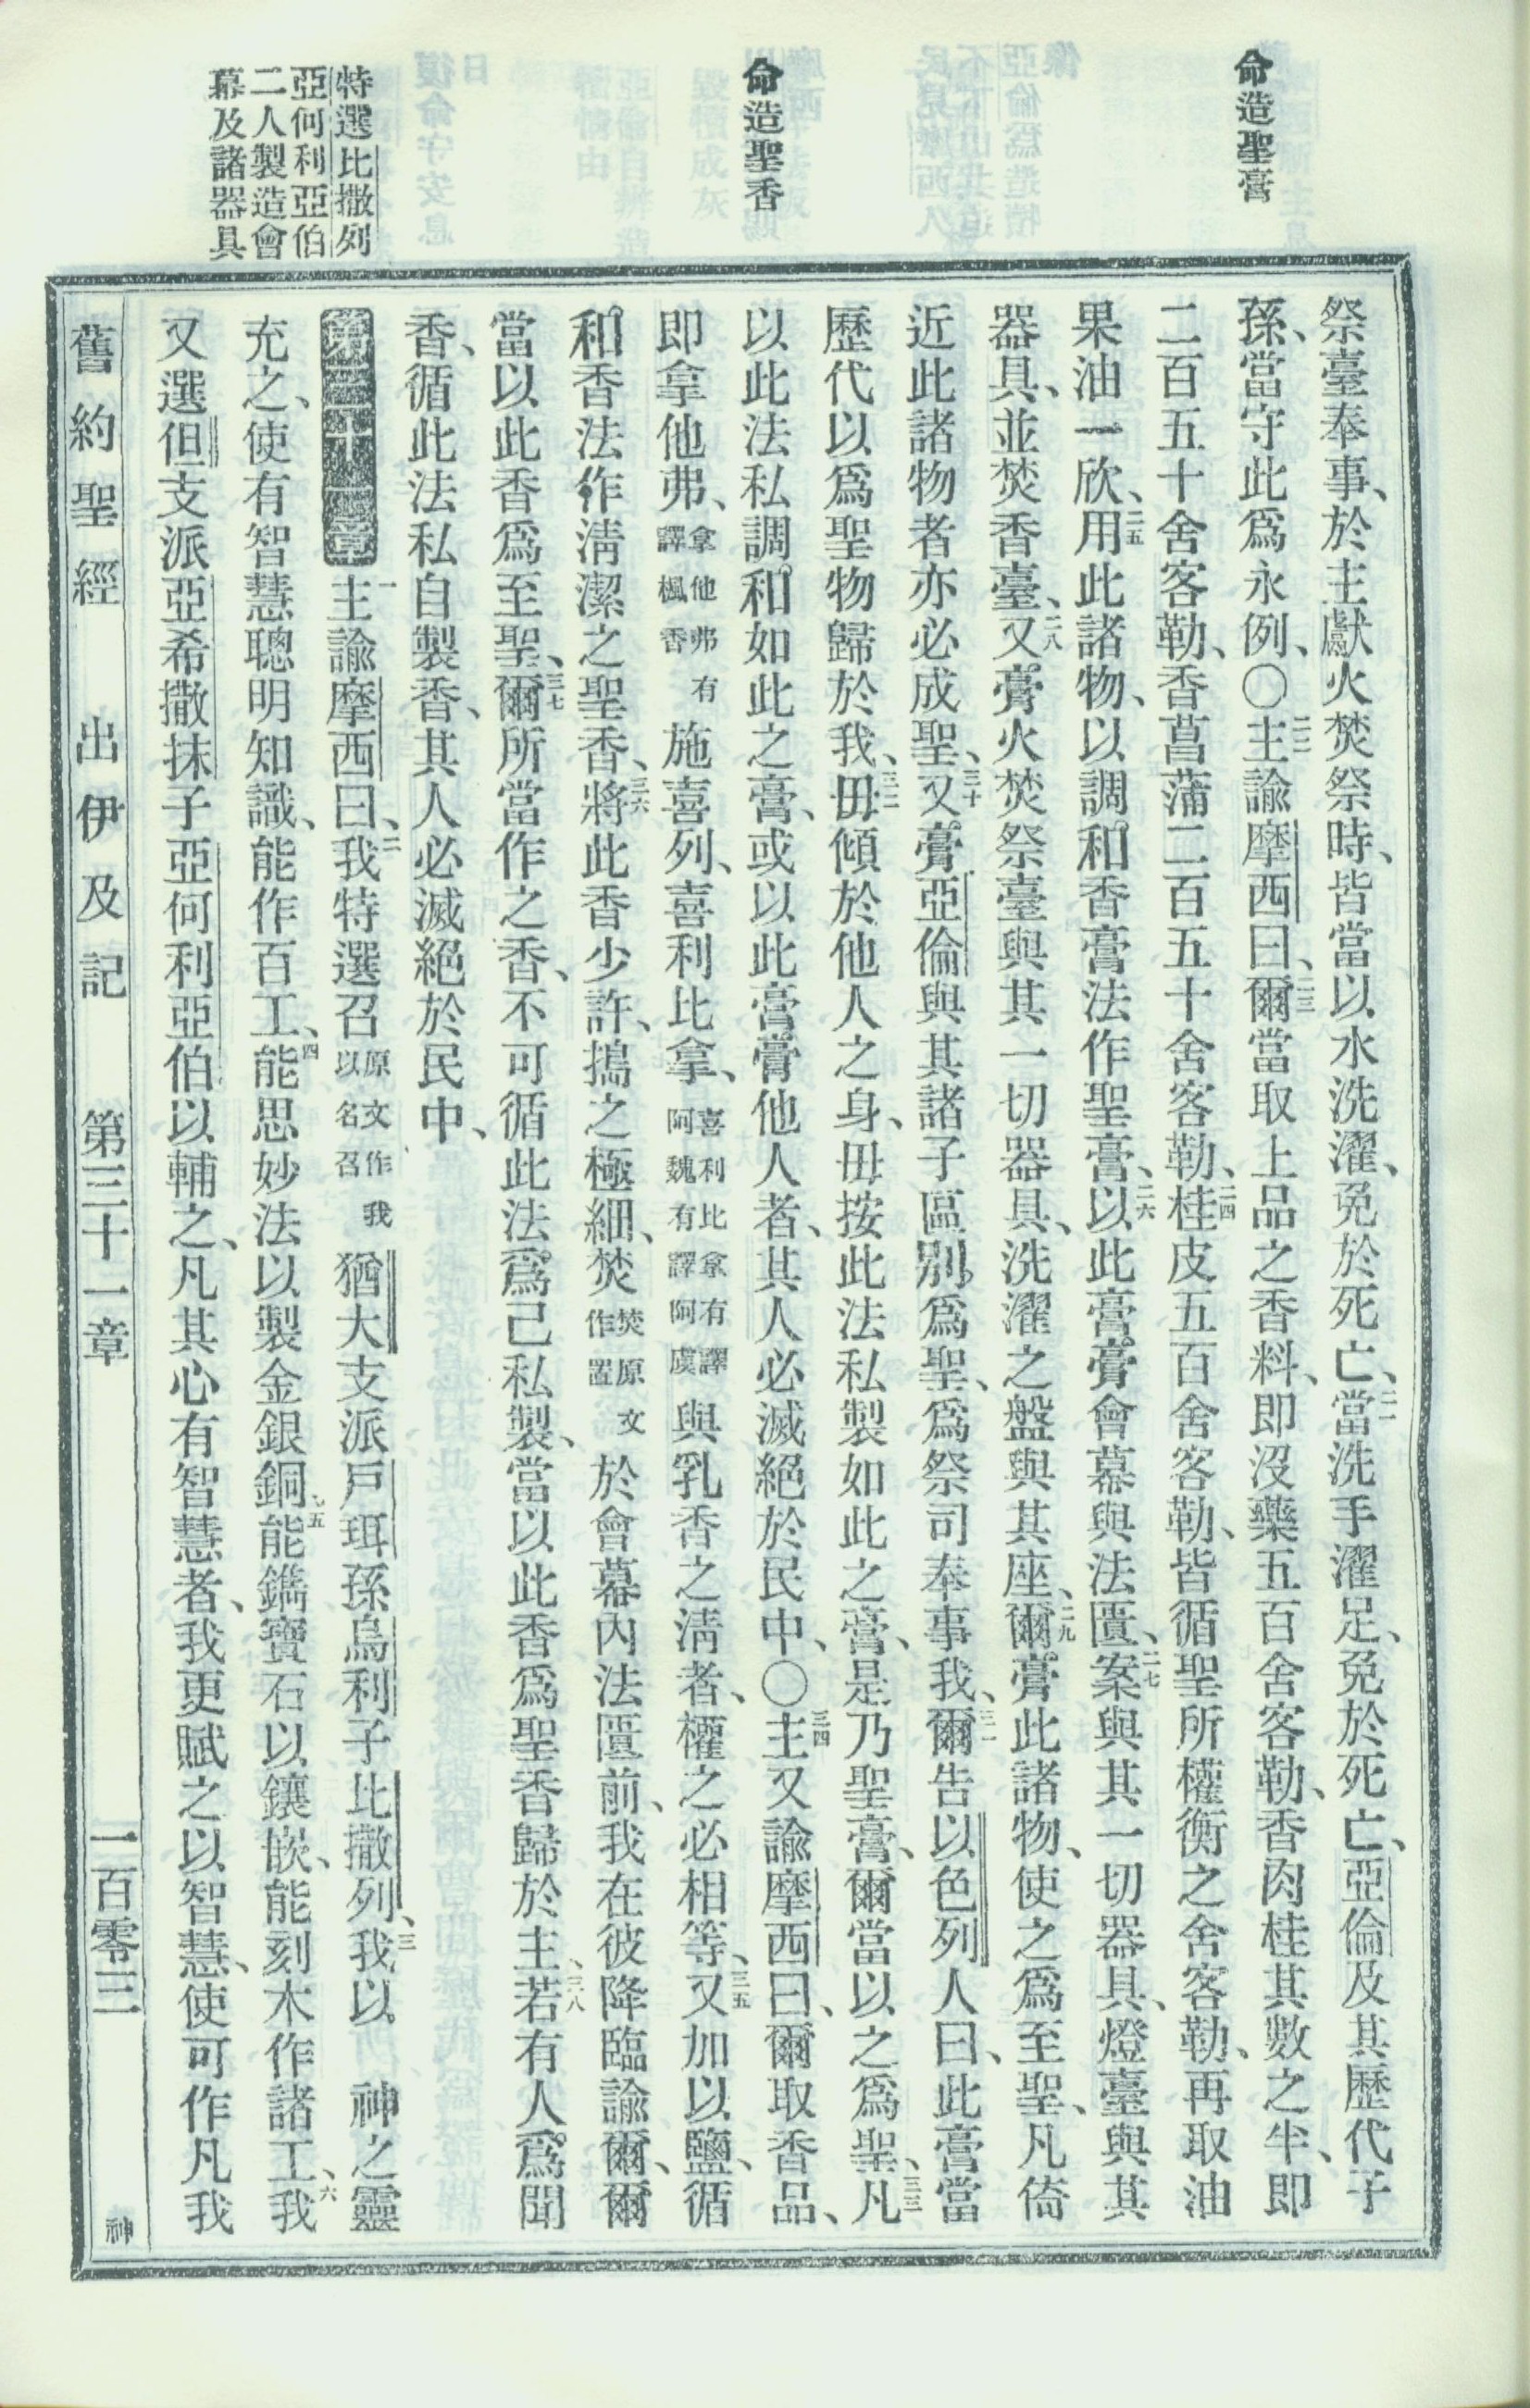 命造聖膏
命造聖香
特選比撒列
亞何利亞伯
二人製造會
幕及諸器具
祭臺奉事、於主獻火焚祭時、皆當以水洗濯、免於死亡、二一當洗手濯足、免於死亡、亞倫及其歷代子
孫、當守此爲永例、○二二主諭摩西曰、二三爾當取上品之香料、卽沒藥五百舍客勒、香肉桂其數之半、卽
二百五十舍客勒、香菖蒲二百五十舍客勒、二四桂皮五百舍客勒、皆循聖所權衡之舍客勒、再取油
果油一欣、二五用此諸物、以調和香膏法作聖膏、二六以此膏膏會幕與法匱、二七案與其一切器具、燈臺與其
器具、並焚香臺、二八又膏火焚祭臺與其一切器具、洗濯之盤與其座、二九爾膏此諸物、使之爲至聖、凡倚
近此諸物者亦必成聖、三十又膏亞倫與其諸子區別爲聖、爲祭司奉事我、三一爾告以色列人曰、此膏當
歷代以爲聖物歸於我、三二毋傾於他人之身、毋按此法私製如此之膏、是乃聖膏、爾當以之爲聖、三三凡
以此法私調和如此之膏、或以此膏膏他人者、其人必滅絕於民中、○三四主又諭摩西曰、爾取香品、
卽拿他弗、拿他弗有譯楓香施喜列、喜利比拿、喜利比拿有譯阿魏有譯阿虞與乳香之淸者、權之必相等、三五又加以鹽、循
和香法作淸潔之聖香、三六將此香少許、搗之極細、焚焚原文作置於會幕內法匱前、我在彼降臨諭爾、爾
當以此香爲至聖、三七爾所當作之香、不可循此法爲己私製、當以此香爲聖香歸於主、三八若有人爲聞
香、循此法私自製香、其人必滅絕於民中、
第三十一章一主諭摩西曰、二我特選召原文作我以名召猶大支派戶珥孫烏利子比撒列、三我以 神之靈
充之、使有智慧聰明知識、能作百工、四能思妙法以製金銀銅、五能鐫寶石以鑲嵌、能刻木作諸工、六我
又選但支派亞希撒抹子亞何利亞伯以輔之、凡其心有智慧者、我更賦之以智慧、使可作凡我
舊約聖經 出伊及記 第三十一章 一百零三 神